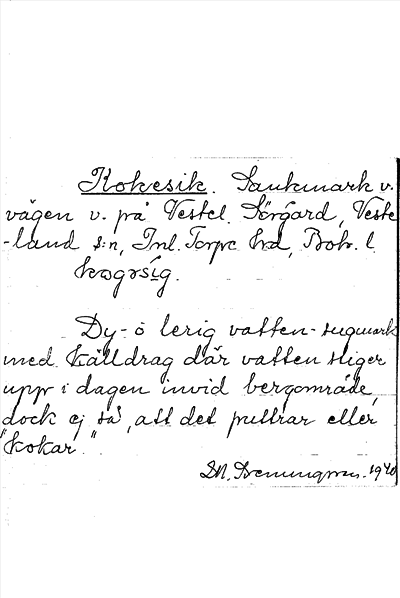 Kokesik. Sankmark v.
vägen v. på Vestel. Sörgård, Veste
-land s:n, Inl. Torpe hd, Boh. l.
Dy- o lerig vatten-sugmark
med källdrag där vatten stiger
upp i dagen invid bergområde,
dock ej så, att det puttrar eller
"kokar."
1940